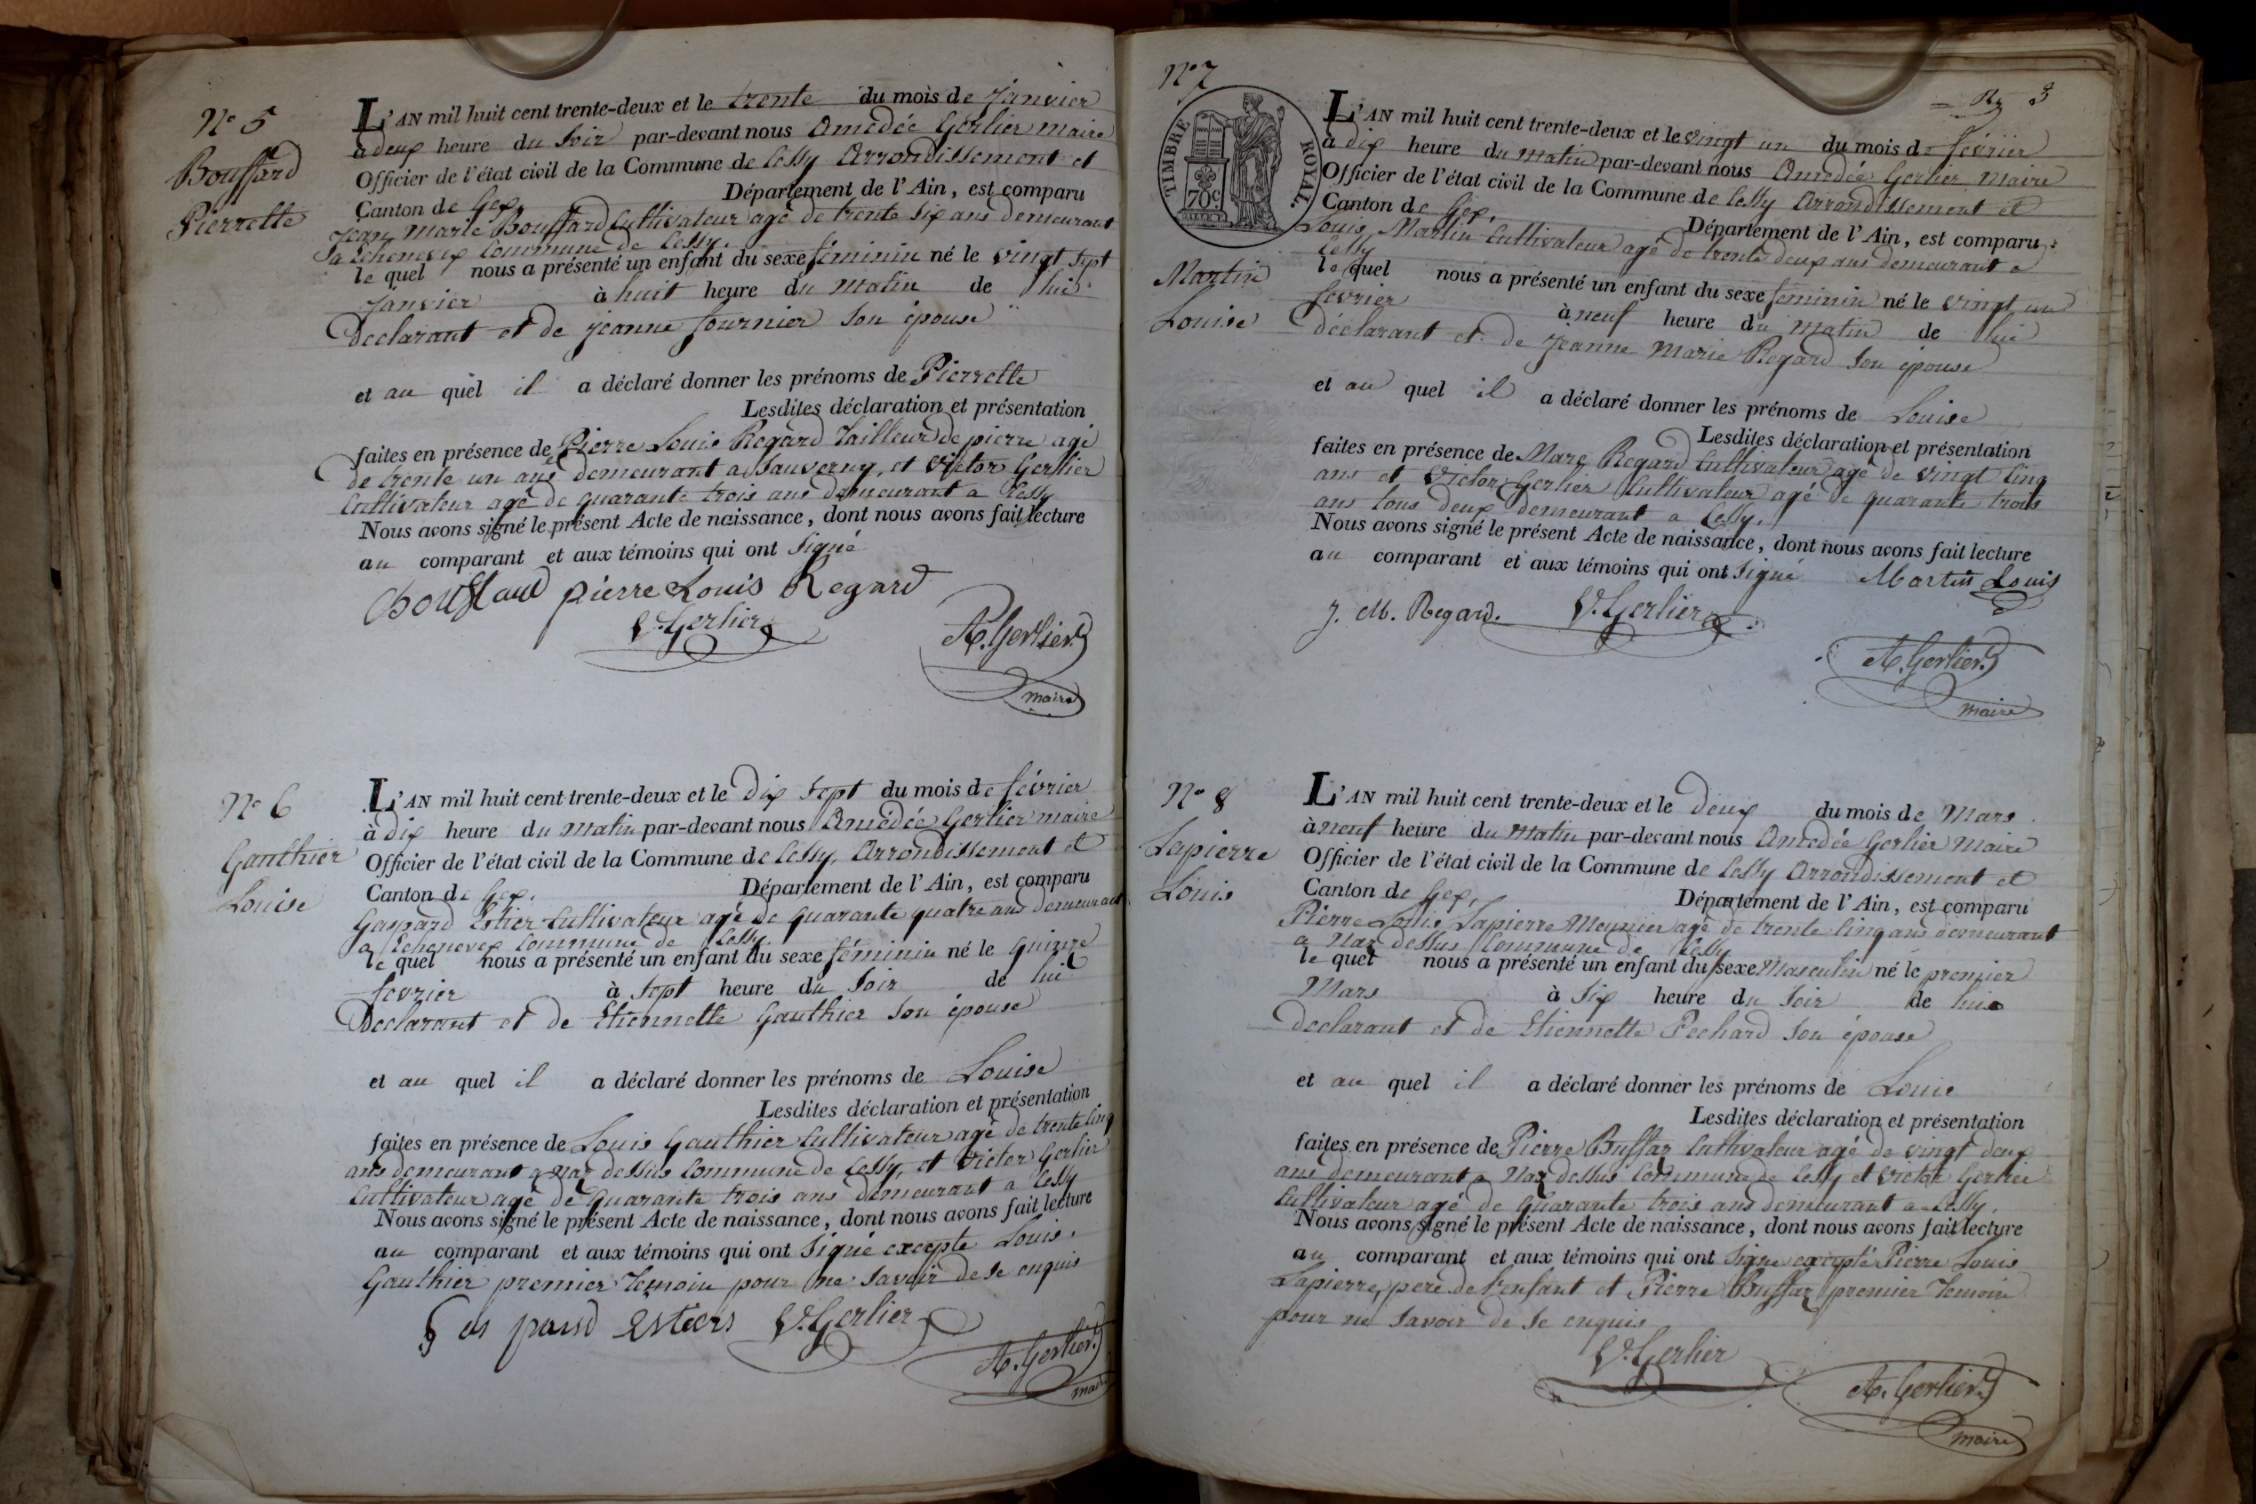 N° 5
Bouffard
Pierrette
L'AN mil huit cent trente-deux et le trente du mois de Janvier
à deux heure du Soir par-devant nous Amédée Gerlier maire
Officier de l'état civil de la Commune de Cessy Arrondissement et
Canton de Gex, Département de l'Ain, est comparu
Jean Marie Bouffard Cultivateur agé de trente six ans demeurant
à Echenevex Commune de Cessy.
le quel nous a présenté un enfant du sexe féminin né le vingt sept
Janvier à huit heure du matin de lui
Declarant et de jeanne fournier son épouse
et au quel il a déclaré donner les prénoms de Pierrette
Lesdites déclaration et présentation
faites en présence de Pierre Louis Regard Tailleur de pierre agé
de trente un ans demeurant a Sauverny, et Victor Gerlier
Cultivateur agé de quarante trois ans demeurant a Cessy
Nous avons signé le présent Acte de naissance, dont nous avons fait lecture
au comparant et aux témoins qui ont Signé
Bouffard pierre Louis Regard
V. Gerlier
A. Gerlier
maire
N° 6
Gauthier
Louise
L'AN mil huit cent trente-deux et le Dix Sept du mois de février
à dix heure du matin par-devant nous Amédée Gerlier maire
Officier de l'état civil de la Commune de Cessy, Arrondissement et
Canton de Gex. Département de l'Ain, est comparu
Gaspard Estier Cultivateur agé de quarante quatre ans demeurant
a Echenevex Commune de Cessy
le quel nous a présenté un enfant du sexe féminin né le quinze
fevrier à Sept heure du Soir de lui
Declarant et de Etiennette Gauthier Son épouse
et au quel il a déclaré donner les prénoms de Louise
Lesdites déclaration et présentation
faites en présence de Louis Gauthier Cultivateur agé de trente cinq
ans demeurant a Naz dessus Commune de Cessy, et Victor Gerlier
Cultivateur agé de Quarante trois ans demeurant a Cessy
Nous avons signé le présent Acte de naissance, dont nous avons fait lecture
au comparant et aux témoins qui ont Signé excepte Louis
Gauthier premier Temoin pour ne Savoir de ce enquis
Gaspard Estiers V. Gerlier
A. Gerlier
maire
N° 7
3
TIMBRE ROYAL
70c
Martin
Louise
L'AN mil huit cent trente-deux et le vingt un du mois de février
à dix heure du matin par-devant nous Amédée Gerlier Maire
Officier de l'état civil de la Commune de Cessy Arrondissement et
Canton de Gex, Département de l'Ain, est comparu
Louis Martin Cultivateur agé de trente deux ans demeurant a
Cessy
le quel nous a présenté un enfant du sexe féminin né le vingt un
fevrier à neuf heure du matin de lui
déclarant et de Jeanne Marie Regard Son épouse
et au quel il a déclaré donner les prénoms de Louise
Lesdites déclaration et présentation
faites en présence de Marc Regard Cultivateur agé de vingt cinq
ans et Victor Gerlier Cultivateur agé de quarante trois
ans tous deux demeurant a Cessy.
Nous avons signé le présent Acte de naissance, dont nous avons fait lecture
au comparant et aux témoins qui ont Signé Martin Louis
J. M. Regard. V. Gerlier
A. Gerlier
maire
N° 8
Lapierre
Louis
L'AN mil huit cent trente-deux et le deux du mois de Mars
à neuf heure du matin par-devant nous Amédée Gerlier Maire
Officier de l'état civil de la Commune de Cessy Arrondissement et
Canton de Gex, Département de l'Ain, est comparu
Pierre Louis Lapierre Meunier agé de trente cinq ans demeurant
a Naz dessus Commune de Cessy
le quel nous a présenté un enfant du sexe Masculin né le premier
Mars à Six heure du Soir de lui
declarant et de Etiennette Pechard Son épouse
et au quel il a déclaré donner les prénoms de Louis
Lesdites déclaration et présentation
faites en présence de Pierre Buffar Cultivateur agé de vingt deux
ans demeurant a Naz dessus Commune de Cessy et Victor Gerlier
Cultivateur agé de Quarante trois ans demeurant a Cessy.
Nous avons signé le présent Acte de naissance, dont nous avons fait lecture
au comparant et aux témoins qui ont Signe excepté Pierre Louis
Lapierre, pere de l'enfant et Pierre Buffar premier Temoin
pour ne Savoir de Ce enquis
V. Gerlier
A. Gerlier
maire